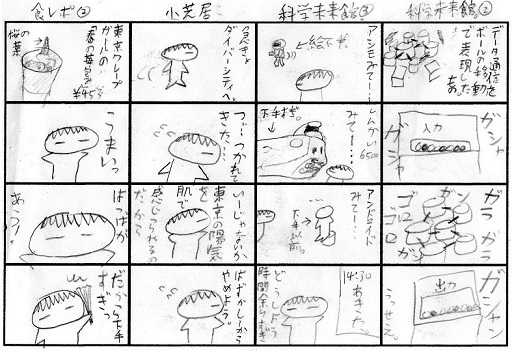 科学未来館②
データ通信を
ボールの移動
で表現した
もの。
ガシャ
ガシャ
入力
ガラ
ガラ
ガン
ゴロ
ゴロ
ガン
ガシャン
出力
うっせえ。
科学未来館③
アシモみて…
しんかい6500
みて…
下手すぎ。
アンドロイド
みて…
14:30
あきた。
どーしよう
時間余りすぎ
小芝居
ダイバーシティへ。
つ…つかれて
きた…
いーじゃなぃか
東京の陽気
を
肌で
感じられるの
だから
はずかしーから
やめよう。
食レポ②
東京クレープ
ガールの
「春の葉容」
¥453
桜葉
うまいっ
はっぱが
あらう!
だから下手
すぎっ